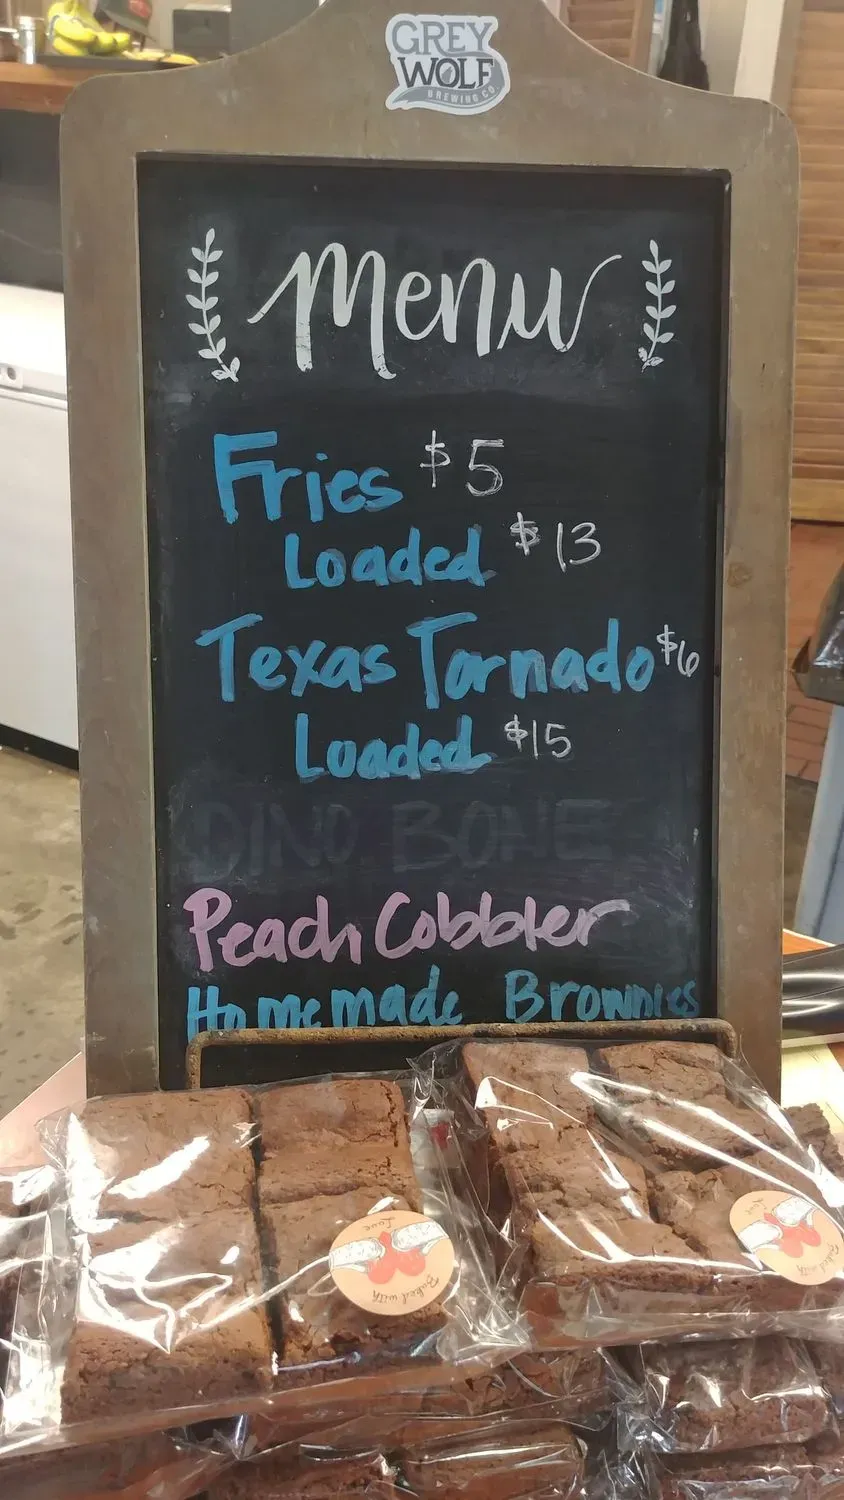 GREY
WOLF
BREWING CO.
Menu
Fries $5
Loaded $13
Texas Tornado $6
Loaded $15
DINO BONE
Peach Cobbler
Homemade Brownies
Love
Baked with
Love
Baked with